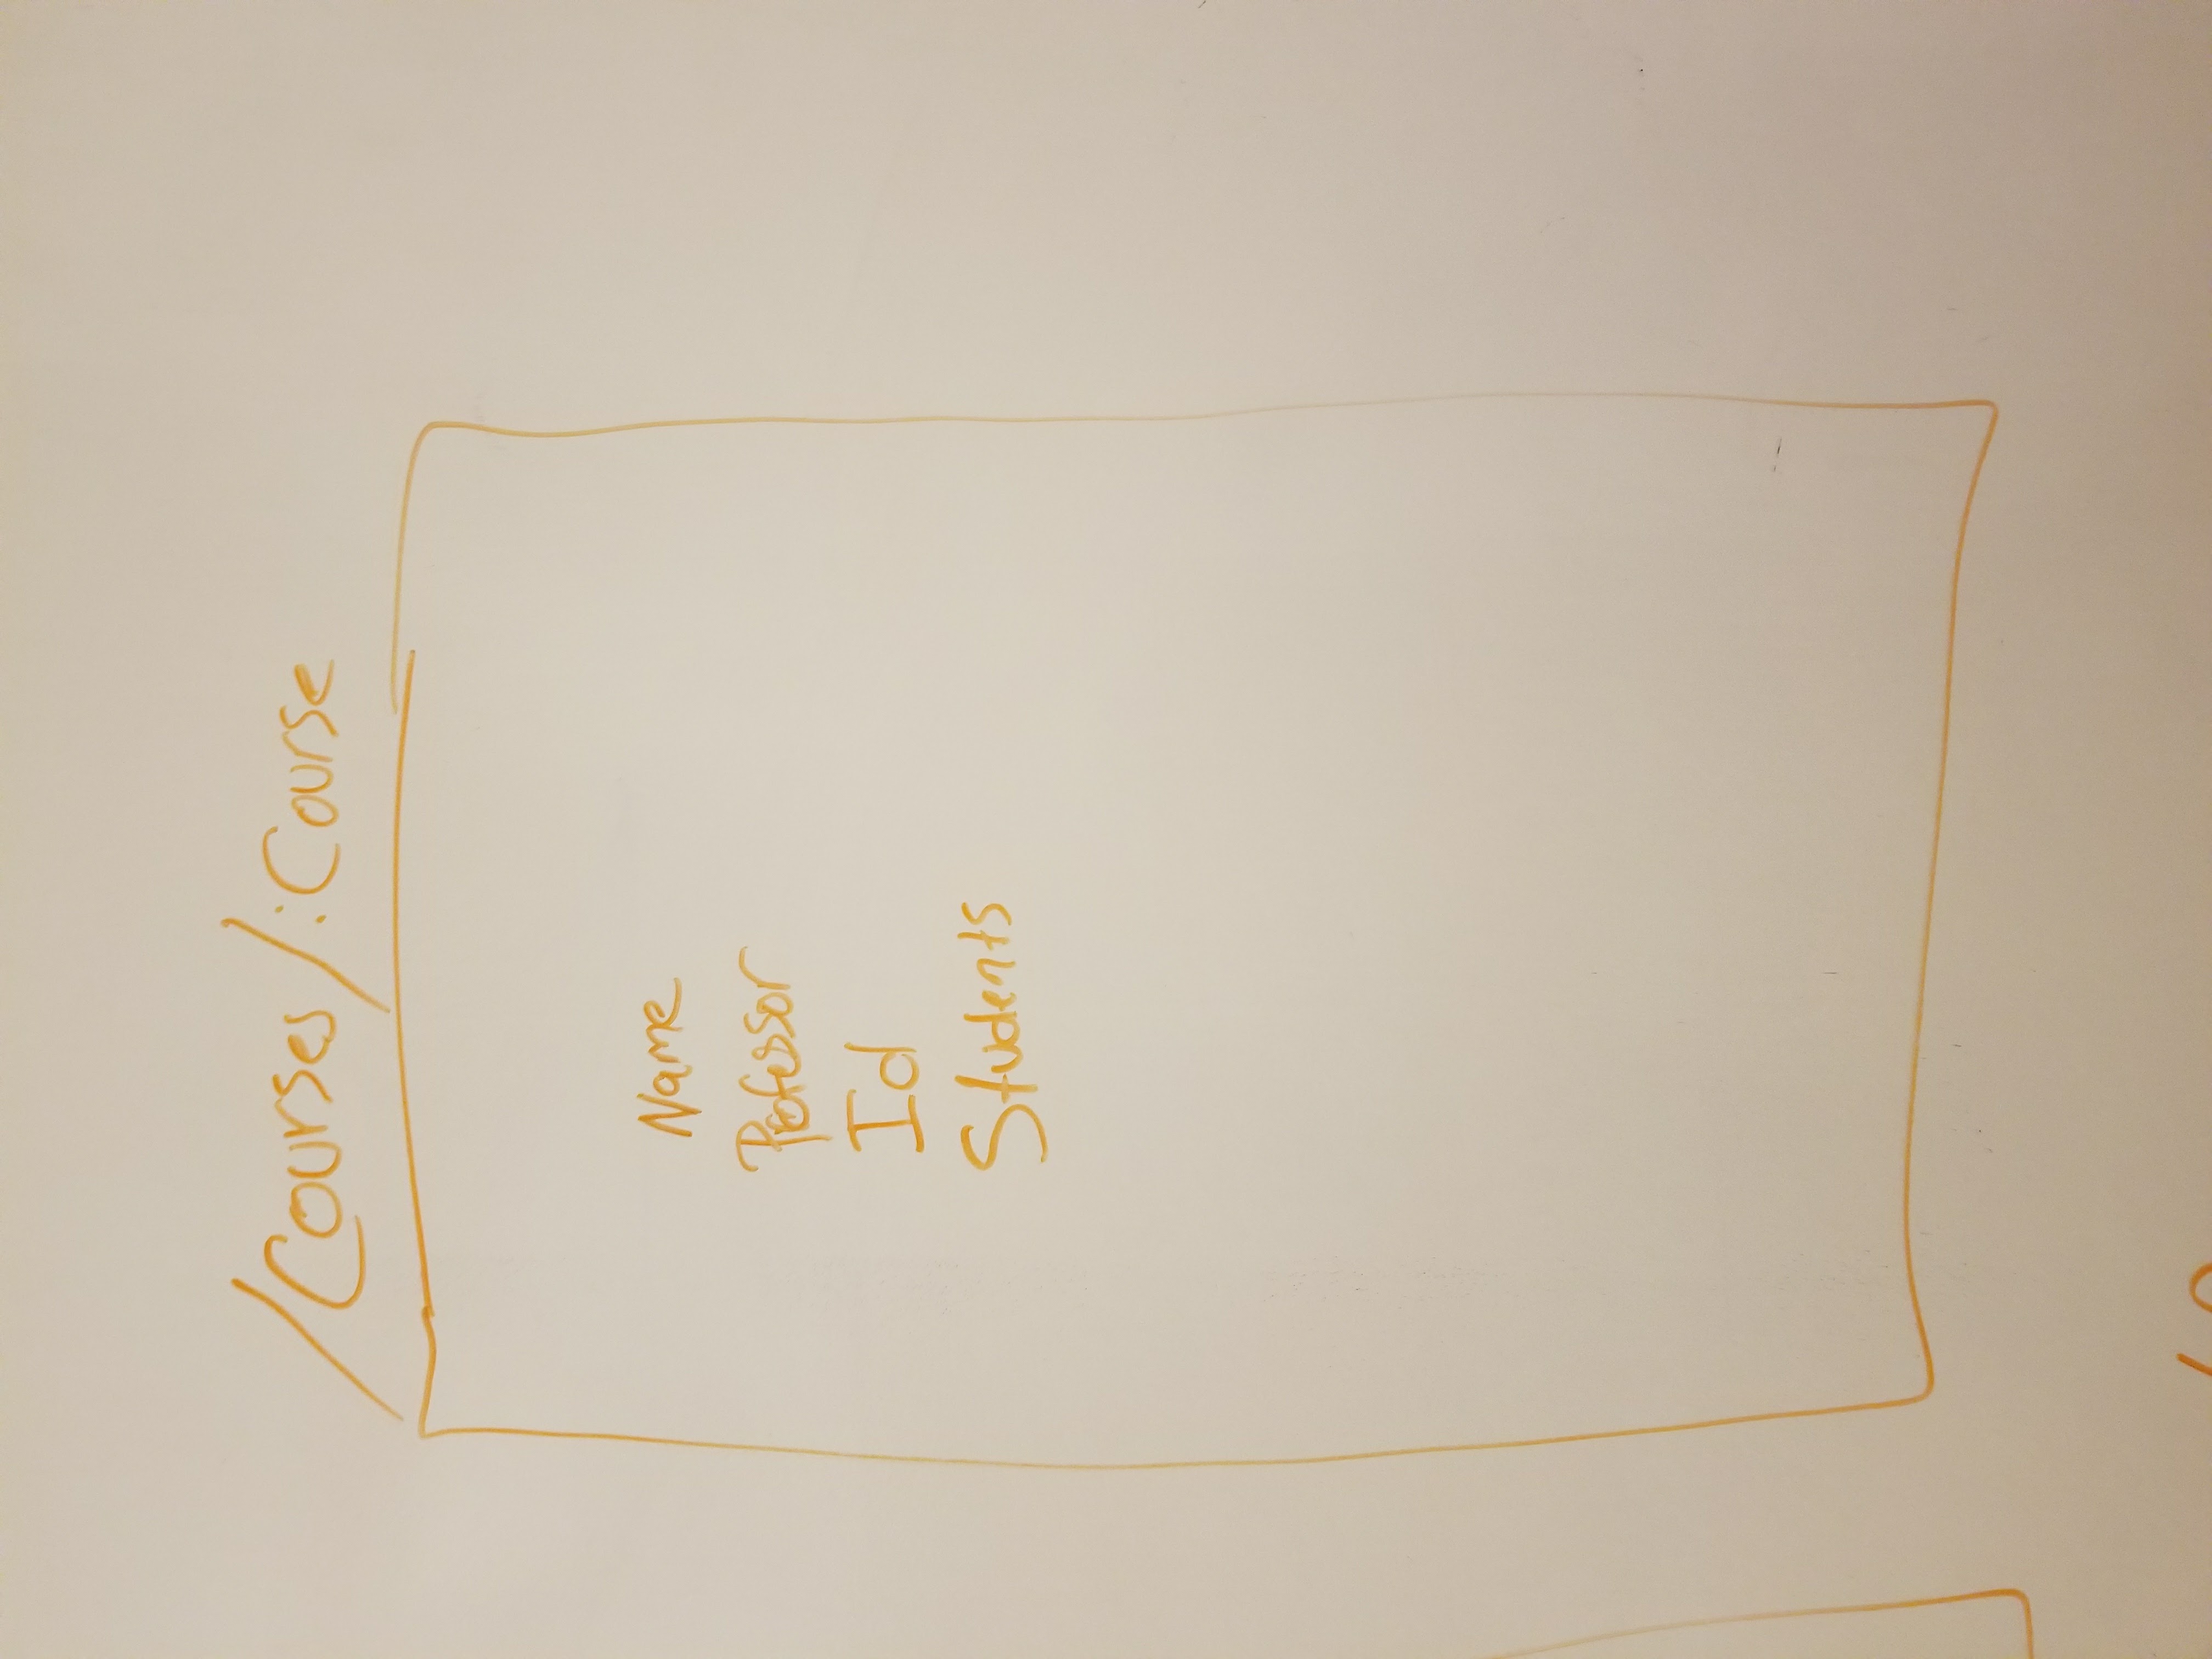 /Courses/:Course
Name
Professor
Id
Students